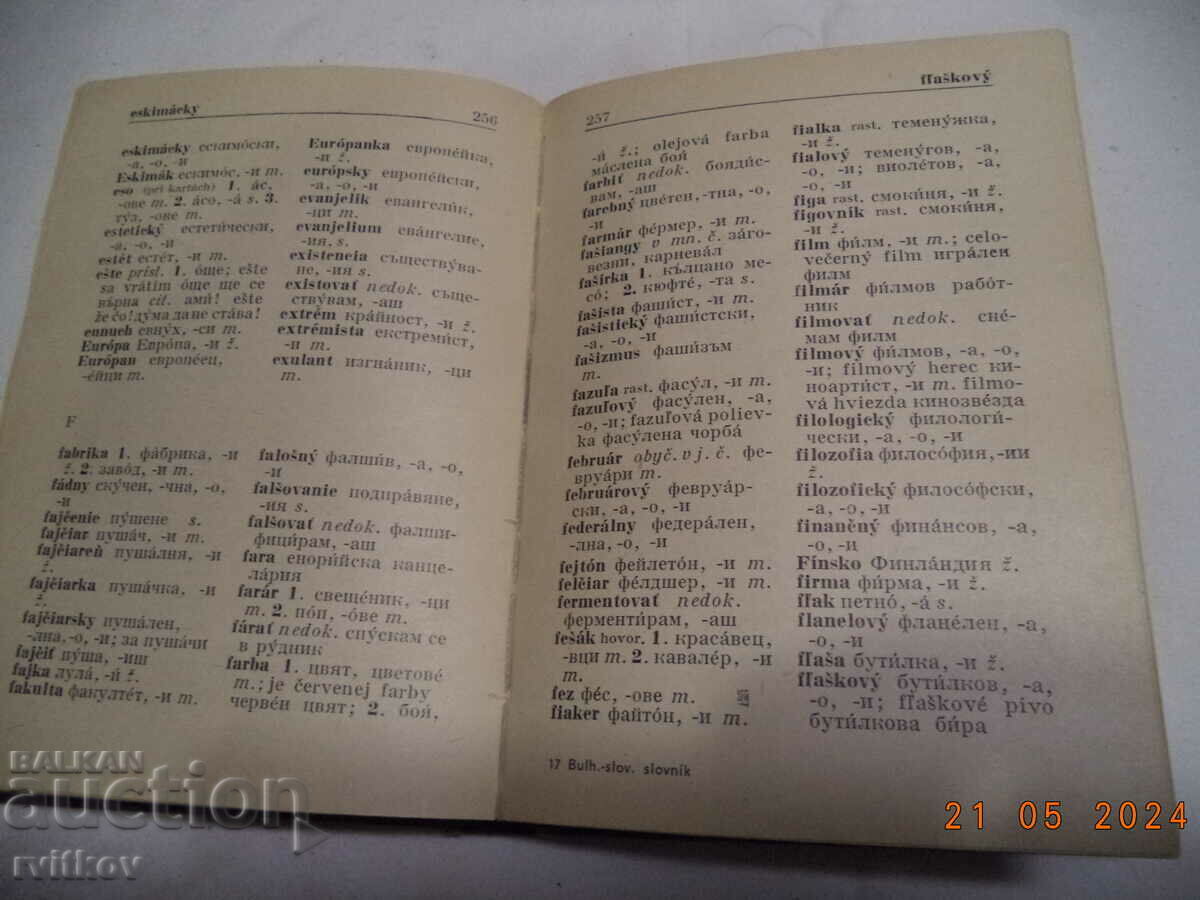 eskimácky 256
eskimácky ескимо́ски,
-а, -о, -и
Eskimák ескимо́с, -и m.
eso (pri kartách) 1. ас,
-ове m. 2. а́со, -а́ s. 3.
ту́з, -ове m.
estetický естети́чески,
-а, -о, -и
estét есте́т, -и m.
ešte prísl. 1. о́ще; ešte
sa vrátim о́ще ще се
въ́рна cit. ами́! ešte
že čo! ду́ма да не ста́ва!
eunuch евну́х, -си m.
Európa Евро́па, -и ž.
Európan европе́ец,
-е́йци m.
Európanka европе́йка,
-и ž.
európsky европе́йски,
-а, -о, -и
evanjelik евангели́к,
-ци m.
evanjelium ева́нгелие,
-ия s.
existencia съществу́ва-
не, -ия s.
existovať nedok. същe-
ству́вам, -аш
extrém кра́йност, -и ž.
extrémista екстреми́ст,
-и m.
exulant изгна́ник, -ци
m.
F
fabrika 1. фа́брика, -и
ž. 2. заво́д, -и m.
fádny ску́чен, -чна, -о,
-и
fajčenie пу́шене s.
fajčiar пуша́ч, -и m.
fajčiareň пуша́лня, -и
ž.
fajčiarka пуша́чка, -и
ž.
fajčiarsky пуша́лен,
-лна, -о, -и; за пуша́чи
fajčiť пу́ша, -иш
fajka лула́, -и́ ž.
fakulta факулте́т, -и m.
falošný фалши́в, -а, -о,
-и
falšovanie подпра́вяне,
-ия s.
falšovať nedok. фалши-
фици́рам, -аш
fara енори́йска канце-
ла́рия
farár 1. свеще́ник, -ци
m. 2. по́п, -о́ве m.
fárať nedok. спу́скам се
в ру́дник
farba 1. цвят, цветове́
m.; je červenej farby
черве́н цвят; 2. боя́,
257 fľaškový
-и́ ž.; olejová farba
ма́слена боя́
farbiť nedok. бояди́с-
вам, -аш
farebný цве́тен, -тна, -о,
-и
farmár фе́рмер, -и m.
fašiangy v mn. č. за́го-
везни, карнева́л
fašírka 1. къ́лцано ме-
со́; 2. кюфте́, -та s.
fašista фаши́ст, -и m.
fašistický фаши́стски,
-а, -о, -и
fašizmus фаши́зъм
m.
fazuľa rast. фасу́л, -и m.
fazuľový фасу́лен, -а,
-о, -и; fazuľová poliev-
ka фасу́лена чорба́
február obyč. v j. č. фе-
вруа́ри m.
februárový февруа́р-
ски, -а, -о, -и
federálny федера́лен,
-лна, -о, -и
fejtón фейлето́н, -и m.
felčiar фе́лдшер, -и m.
fermentovať nedok.
ферменти́рам, -аш
fešák hovor. 1. краса́вец,
-вци m. 2. кавале́р, -и
m.
fez фе́с, -ове m.
fiaker файто́н, -и m.
fialka rast. темену́жка,
-и ž.
fialový темену́гов, -а,
-о, -и; виоле́тов, -а,
-о, -и
figa rast. смоки́ня, -и ž.
figovník rast. смоки́ня,
-и ž.
film фи́лм, -и m.; celo-
večerný film игра́лен
филм
filmár фи́лмов рабо́т-
ник
filmovať nedok. сне́-
мам филм
filmový фи́лмов, -а, -о,
-и; filmový herec ки-
ноарти́ст, -и m. filmo-
vá hviezda кинозвезда́
filologický филологи́-
чески, -а, -о, -и
filozofia филосо́фия, -ии
ž.
filozofický филосо́фски,
-а, -о, -и
finančný фина́нсов, -а,
-о, -и
Fínsko Финла́ндия ž.
firma фи́рма, -и ž.
fľak петно́, -а́ s.
flanelový флане́лен, -а,
-о, -и
fľaša бути́лка, -и ž.
fľaškový бути́лков, -а,
-о, -и; fľaškové pivo
бути́лкова би́ра
17 Bulh.-slov. slovník
BALKAN
auction
rvitkov
21 05 2024